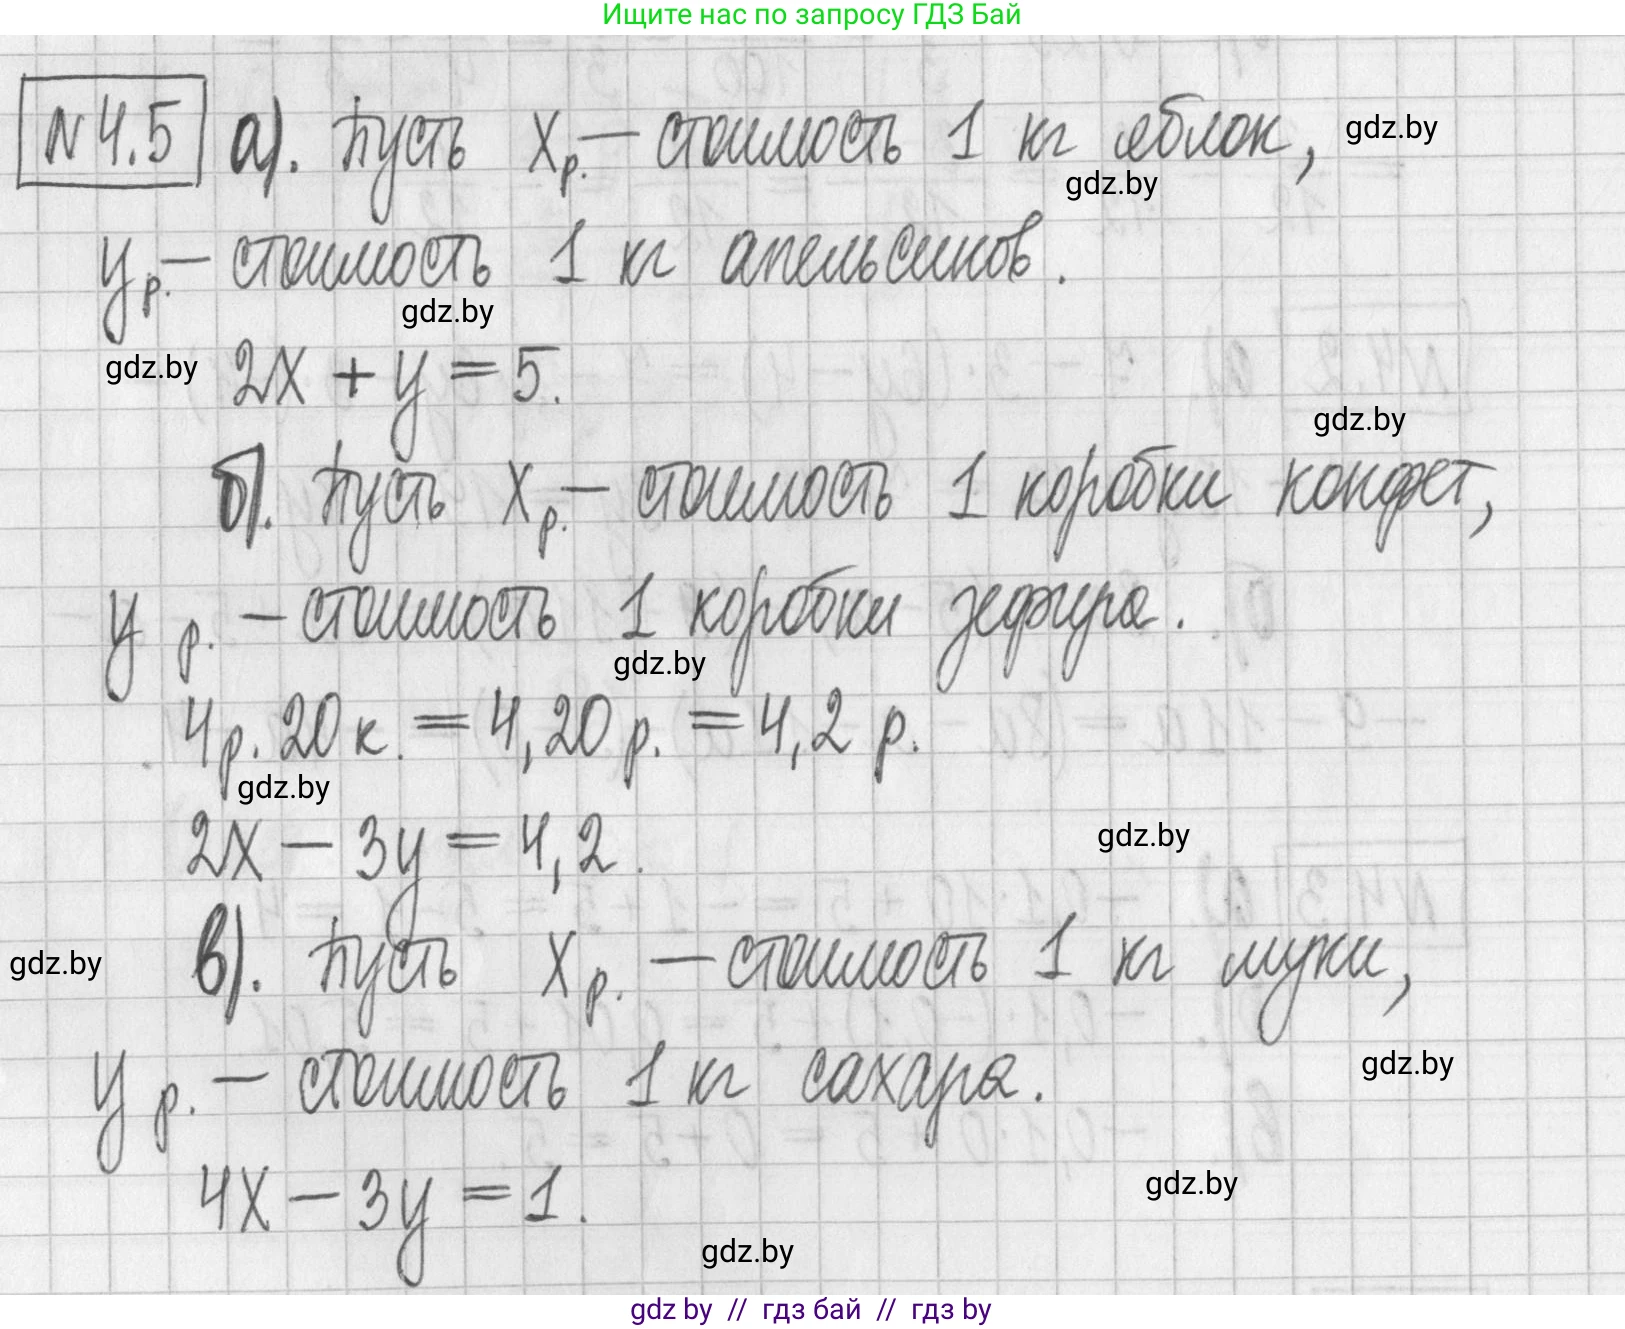 Ищите нас по запросу ГДЗ Бай
№4.5 а). Пусть x р. – стоимость 1 кг яблок, gdz.by
gdz.by
y р. – стоимость 1 кг апельсинов.
gdz.by
gdz.by 2x + y = 5.
gdz.by
б). Пусть x р. – стоимость 1 коробки конфет,
y р. – стоимость 1 коробки зефира.
gdz.by
4 р. 20 к. = 4,20 р. = 4,2 р.
gdz.by
2x – 3y = 4,2. gdz.by
gdz.by в). Пусть x р. – стоимость 1 кг муки,
y р. – стоимость 1 кг сахара. gdz.by
4x – 3y = 1. gdz.by
gdz.by
gdz by // гдз бай // гдз by